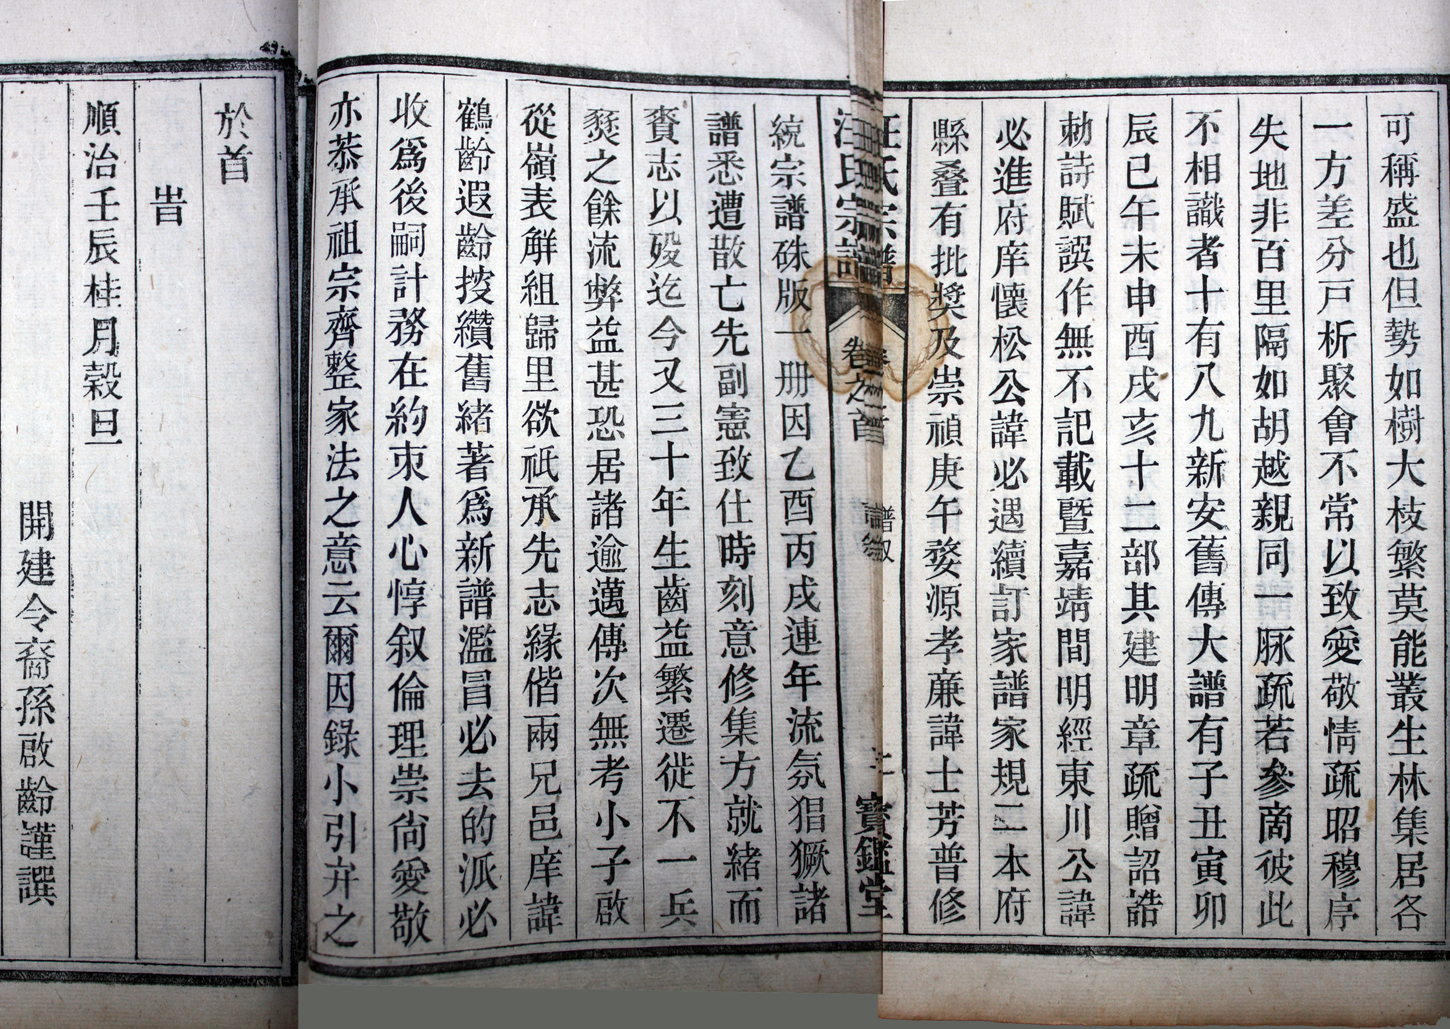 可稱盛也但勢如樹大枝繁莫能叢生林集居各
一方差分戸析聚會不常以致愛敬情疏昭穆序
失地非百里隔如胡越親同一脉疏若參商彼此
不相識者十有八九新安舊傳大譜有子丑寅卯
辰巳午未申酉戌亥十二部其建明章疏贈詔誥
勅詩賦譔作無不記載暨嘉靖間明經東川公諱
必進府庠懷松公諱必遇續訂家譜家規二本府
縣叠有批奬及崇禎庚午婺源孝亷諱士芳普修
汪氏宗譜
卷之首
譜叙
二
寶鑑堂
統宗譜硃版一册因乙酉丙戌連年流氛猖獗諸
譜悉遭散亡先副憲致仕時刻意修集方就緒而
賫志以殁迄今又三十年生齒益繁遷徙不一兵
燹之餘流弊益甚恐居諸逾邁傳次無考小子啟
從嶺表解組歸里欲祇承先志緣偕兩兄邑庠諱
鶴齡遐齡搜纘舊緒著爲新譜濫冒必去的派必
收爲後嗣計務在約束人心惇叙倫理崇尚愛敬
亦恭承祖宗齊整家法之意云爾因錄小引弁之
於首
旹
順治壬辰桂月穀旦
開建令裔孫啟齡謹譔